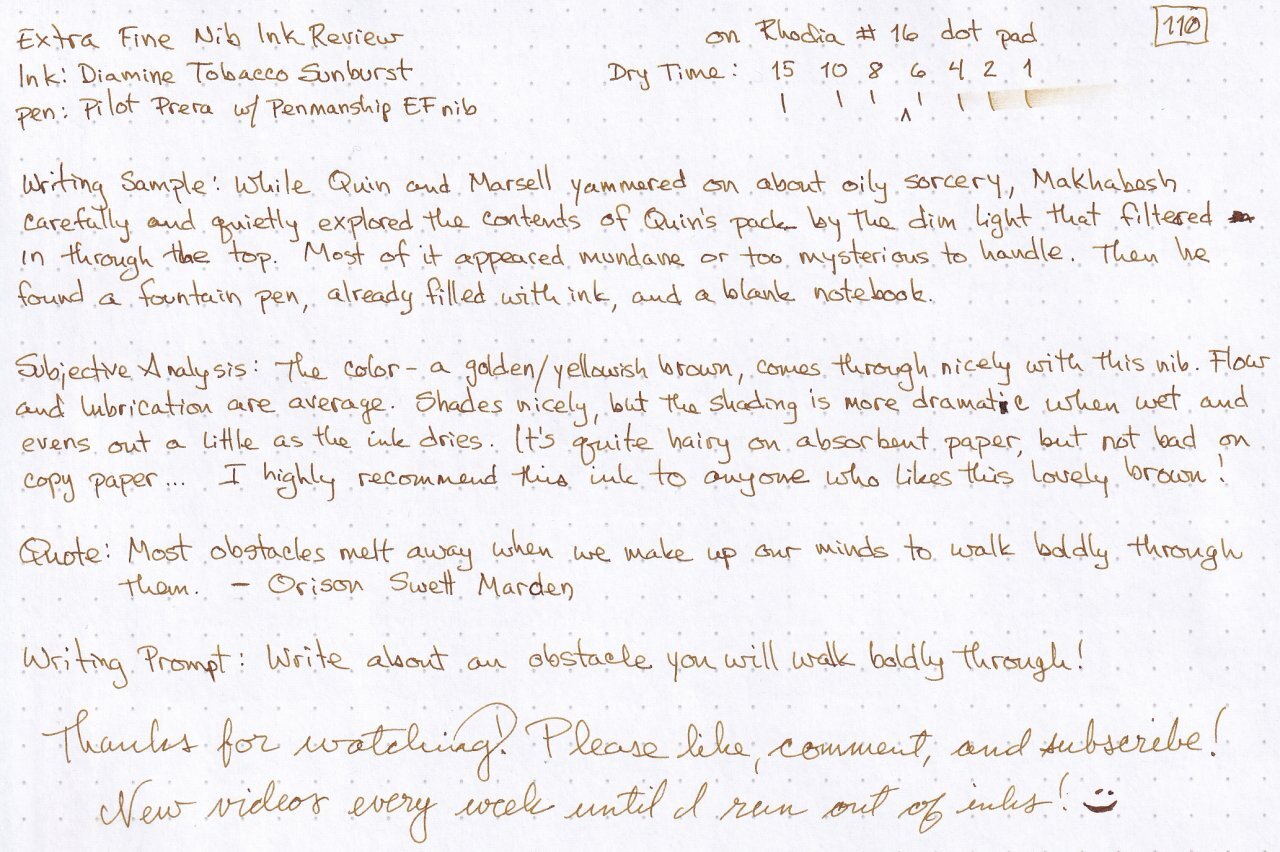 Extra Fine Nib Ink Review on Rhodia # 16 dot pad 110
Ink: Diamine Tobacco Sunburst Dry Time: 15 10 8 6 4 2 1
pen: Pilot Prera w/ Penmanship EF nib
Writing Sample: While Quin and Marsell yammered on about oily sorcery, Makhabesh
carefully and quietly explored the contents of Quin's pack by the dim light that filtered
in through the top. Most of it appeared mundane or too mysterious to handle. Then he
found a fountain pen, already filled with ink, and a blank notebook.
Subjective Analysis: The color - a golden/yellowish brown, comes through nicely with this nib. Flow
and lubrication are average. Shades nicely, but the shading is more dramatic when wet and
evens out a little as the ink dries. It's quite hairy on absorbent paper, but not bad on
copy paper... I highly recommend this ink to anyone who likes this lovely brown!
Quote: Most obstacles melt away when we make up our minds to walk boldly through
them. - Orison Swett Marden
Writing Prompt: Write about an obstacle you will walk boldly through!
Thanks for watching! Please like, comment, and subscribe!
New videos every week until I run out of inks!